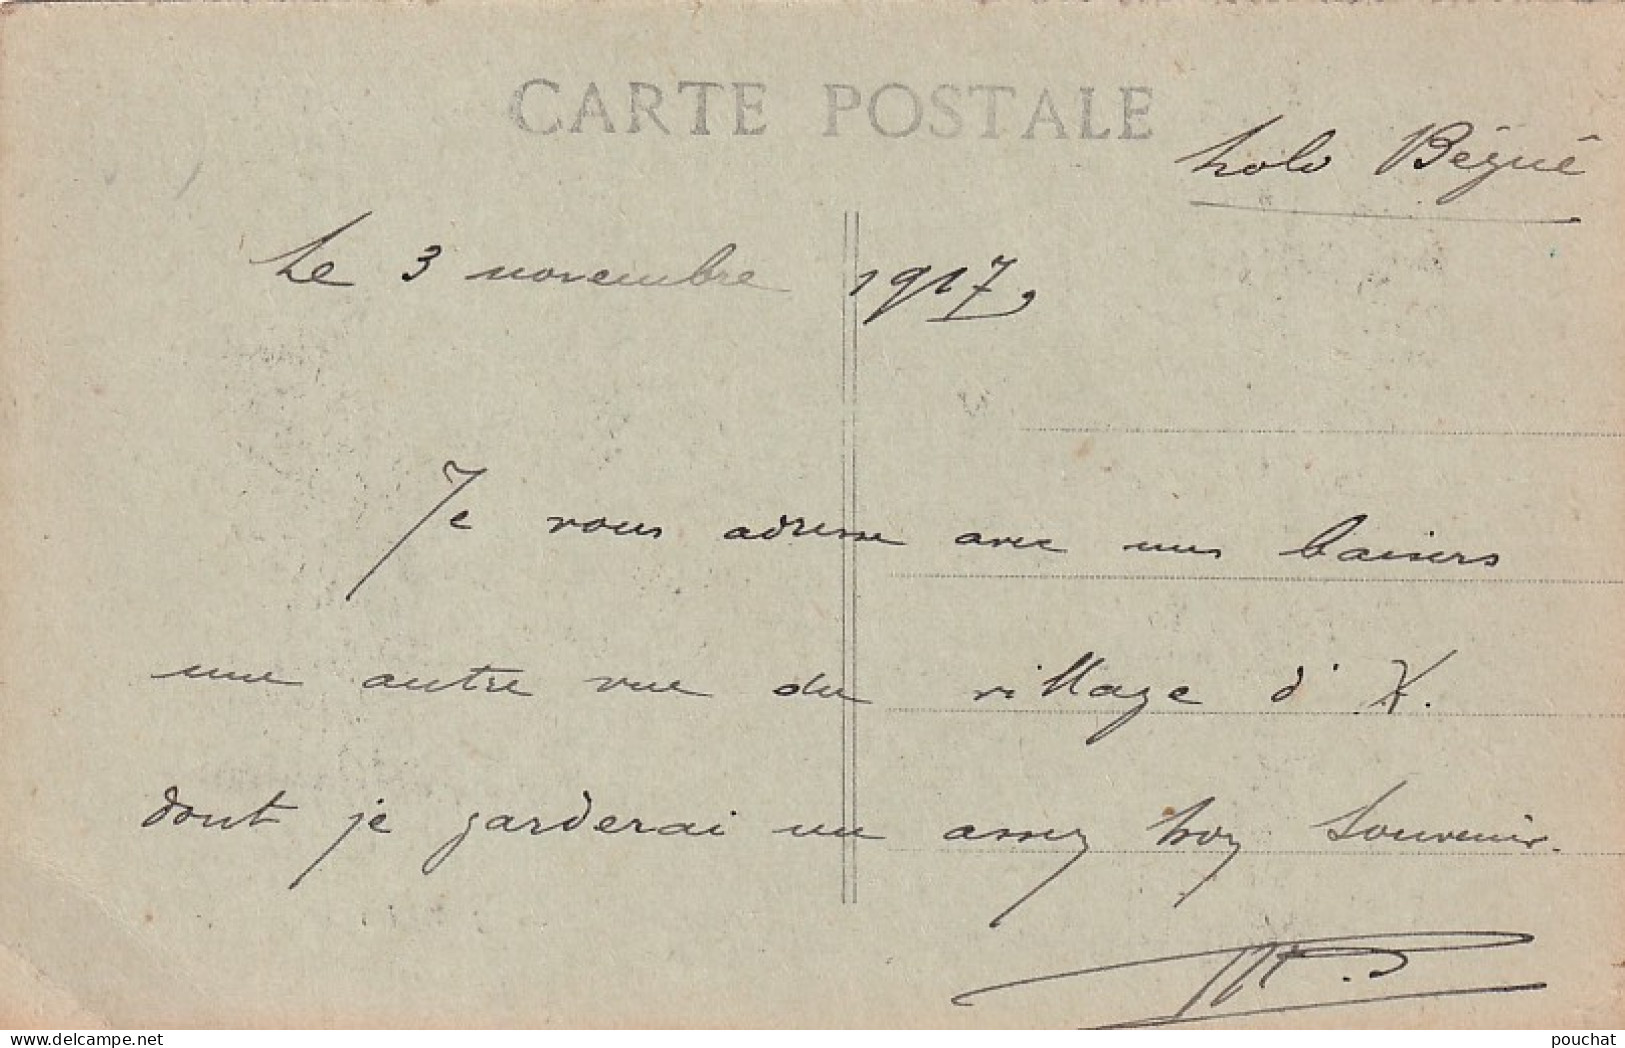 CARTE POSTALE
Bégué
Le 3 novembre 1917,
Je vous adresse avec mes baisers
une autre vue du village d'X.
dont je garderai un assez bon souvenir.
www.delcampe.net
pouchat